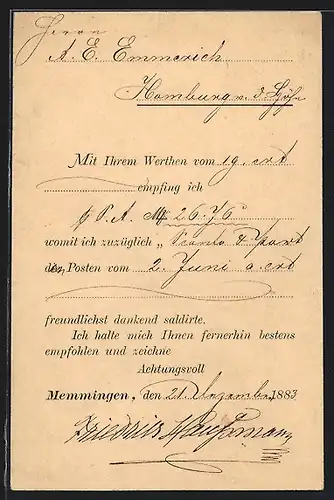 Herrn
A. E. Emmerich
Homburg v. d. Höhe
Mit Ihrem Werthen vom 19. crt
empfing ich
p P. A. M 26.76
womit ich zuzüglich „
Posten vom 2. Juni a. crt
freundlichst dankend saldirte.
Ich halte mich Ihnen fernerhin bestens
empfohlen und zeichne
Achtungsvoll
Memmingen, den 21. Dezember 1883
Friedrich